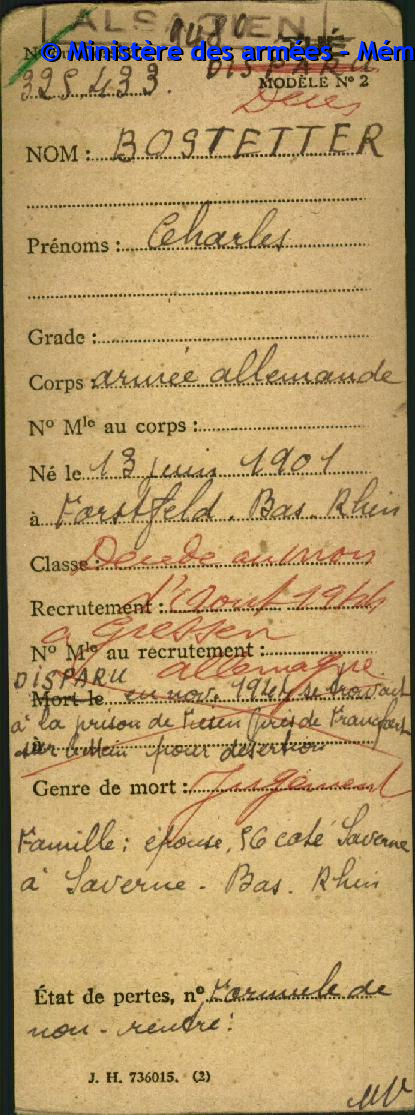 ALSACIEN
© Ministère des armées - Mém
325.433.
DISPARU
MODÈLE N° 2
Déces
NOM : BOSTETTER
Prénoms : Charles
Grade :
Corps : armée allemande
N° Mle au corps :
Né le 13 juin 1901
à Forstfeld. Bas. Rhin
Classe : Décédé environ
Recrutement : 1944
à Giessen
N° Mle au recrutement :
allemagne
DISPARU
Mort le en nov. 1944 se trouvait
à la prison de près de Francfort
sur le Main pour désertion
Genre de mort : Jugement
Famille : épouse, 56 coté Saverne
à Saverne - Bas. Rhin
État de pertes, n° Formule de
non-rentré :
J. H. 736015. (2)